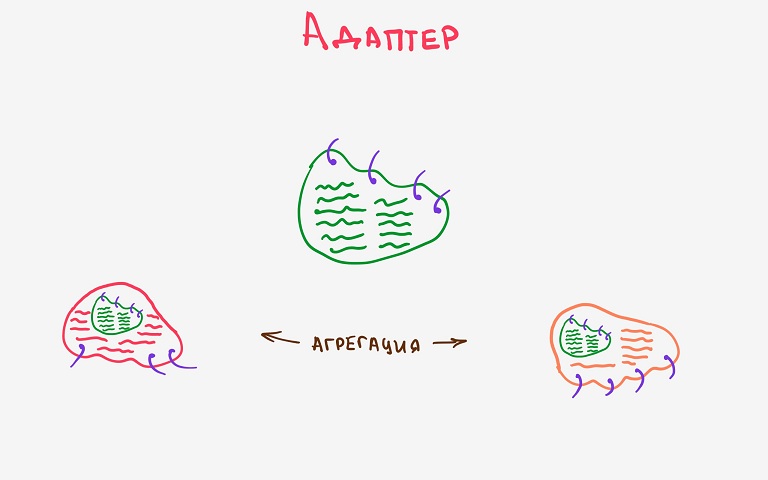 Адаптер
агрегация